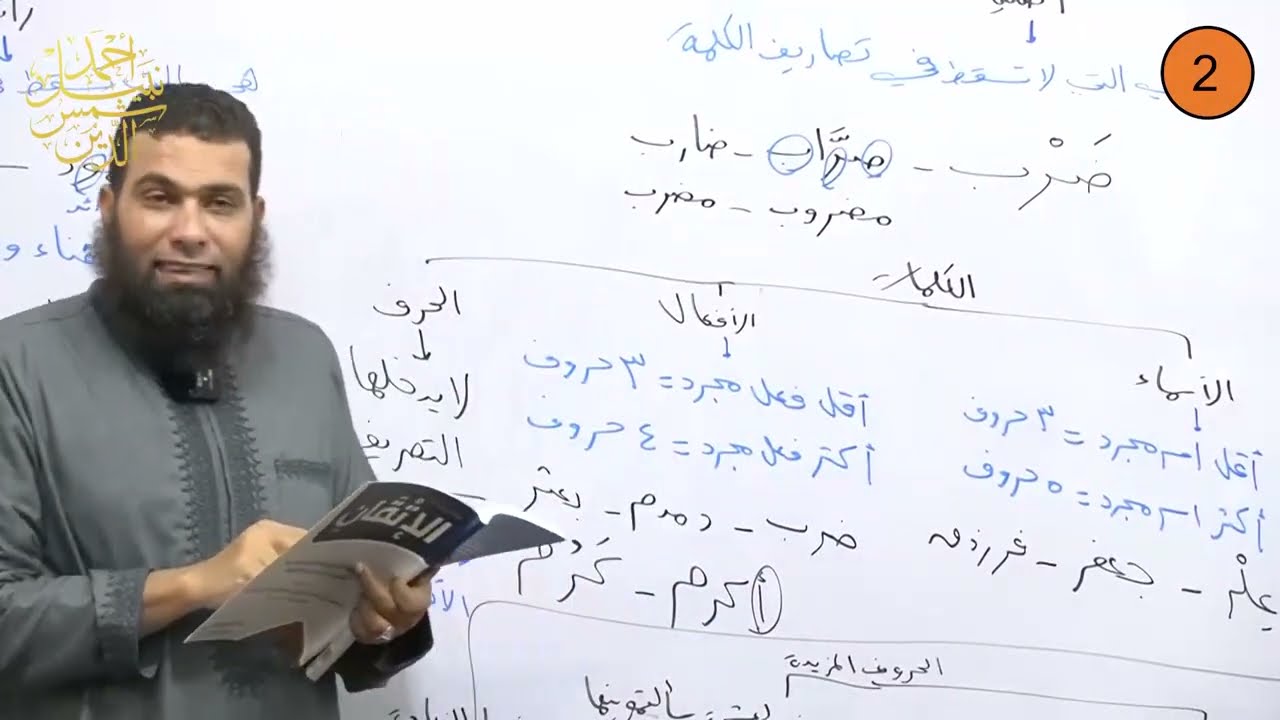 أحمد نبيل شمس الدين
2
هي التي لا تسقط في تصاريف الكلمة
ضَرْب - ضرَّاب - ضارب
مضروب - مضرب
الكلمات
الأسماء
أقل اسم مجرد = ٣ حروف
أكثر اسم مجرد = ٥ حروف
عِلْم - جعفر - فرزدق
الأفعال
أقل فعل مجرد = ٣ حروف
أكثر فعل مجرد = ٤ حروف
ضرب - دمدم - بعثر
أكرم - كَرُم
الحرف
لا يدخلها
التصريف
الإتقان
الحروف المزيدة
سألتمونيها